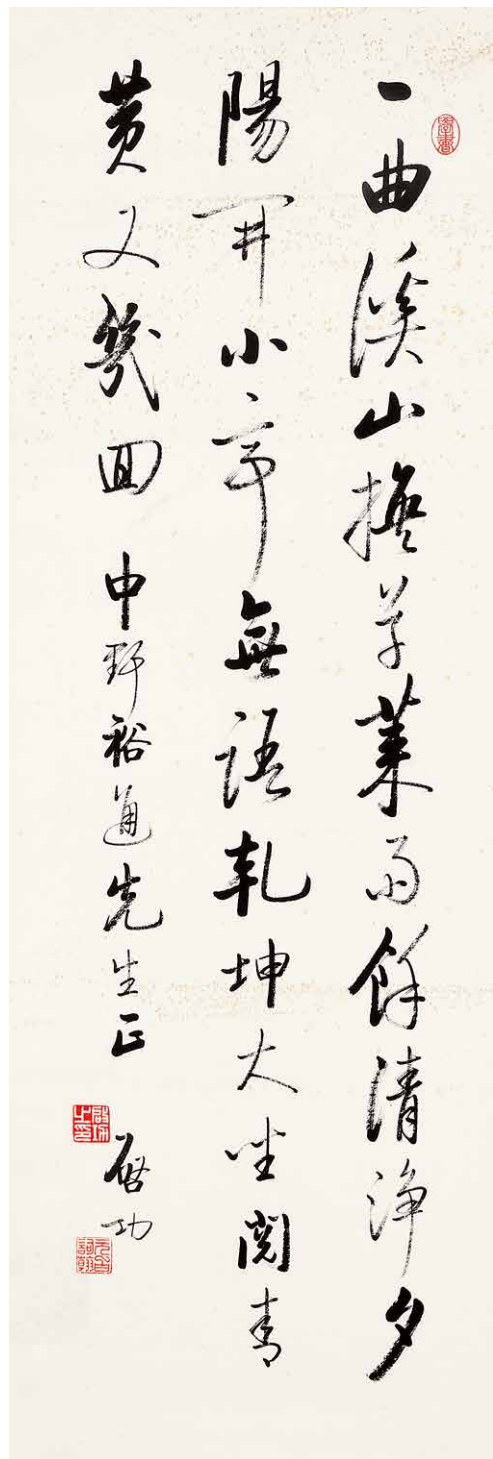 一曲溪山換草萊雨餘清淨夕
陽開小亭無語乾坤大坐閱青
黃又幾回 中野裕通先生正 啓功
啓功之印